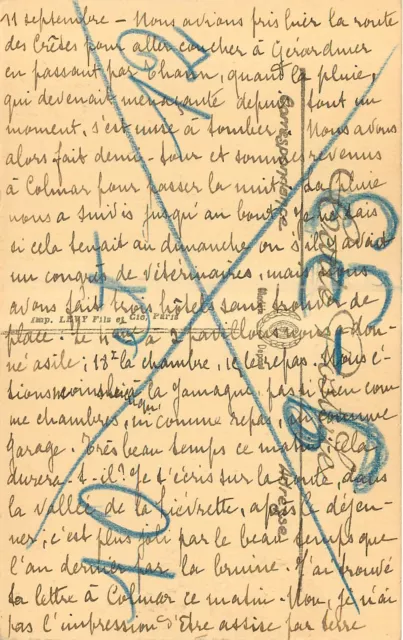 11 septembre - Nous avions pris hier la route
des Crêtes pour aller coucher à Gérardmer
en passant par Thann, quand la pluie,
qui devenait menaçante depuis tout un
moment, s'est mise à tomber. Nous avons
alors fait demi-tour et sommes revenus
à Colmar pour passer la nuit. La pluie
nous a suivis jusqu'au bout. Je ne sais
si cela tenait au dimanche ou s'il y avait
un congrès de vétérinaires, mais nous
avons fait trois hôtels sans trouver de
place. Le à 2 pavillons nous a don-
né asile; 18f la chambre, 15 le repas. Nous é-
tions à la Jamaïque, pas bien com-
me chambres, ni comme repas, ni comme
garage. Très beau temps ce matin. Cela
durera-t-il? Je t'écris sur la route, dans
la vallée de la Lièvrette, après le déjeu-
ner, c'est plus joli par le beau temps que
l'an dernier par la bruine. J'ai trouvé
ta lettre à Colmar ce matin. Non, je n'ai
pas l'impression d'être assise par terre
Correspondance
Adresse
Imp. LEVY Fils et Cie, Paris
12
10